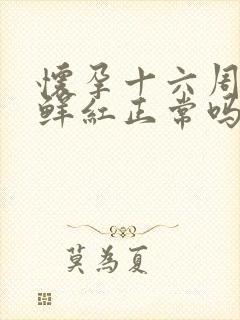 懷孕十六周
鮮紅正常嗎
莫為夏